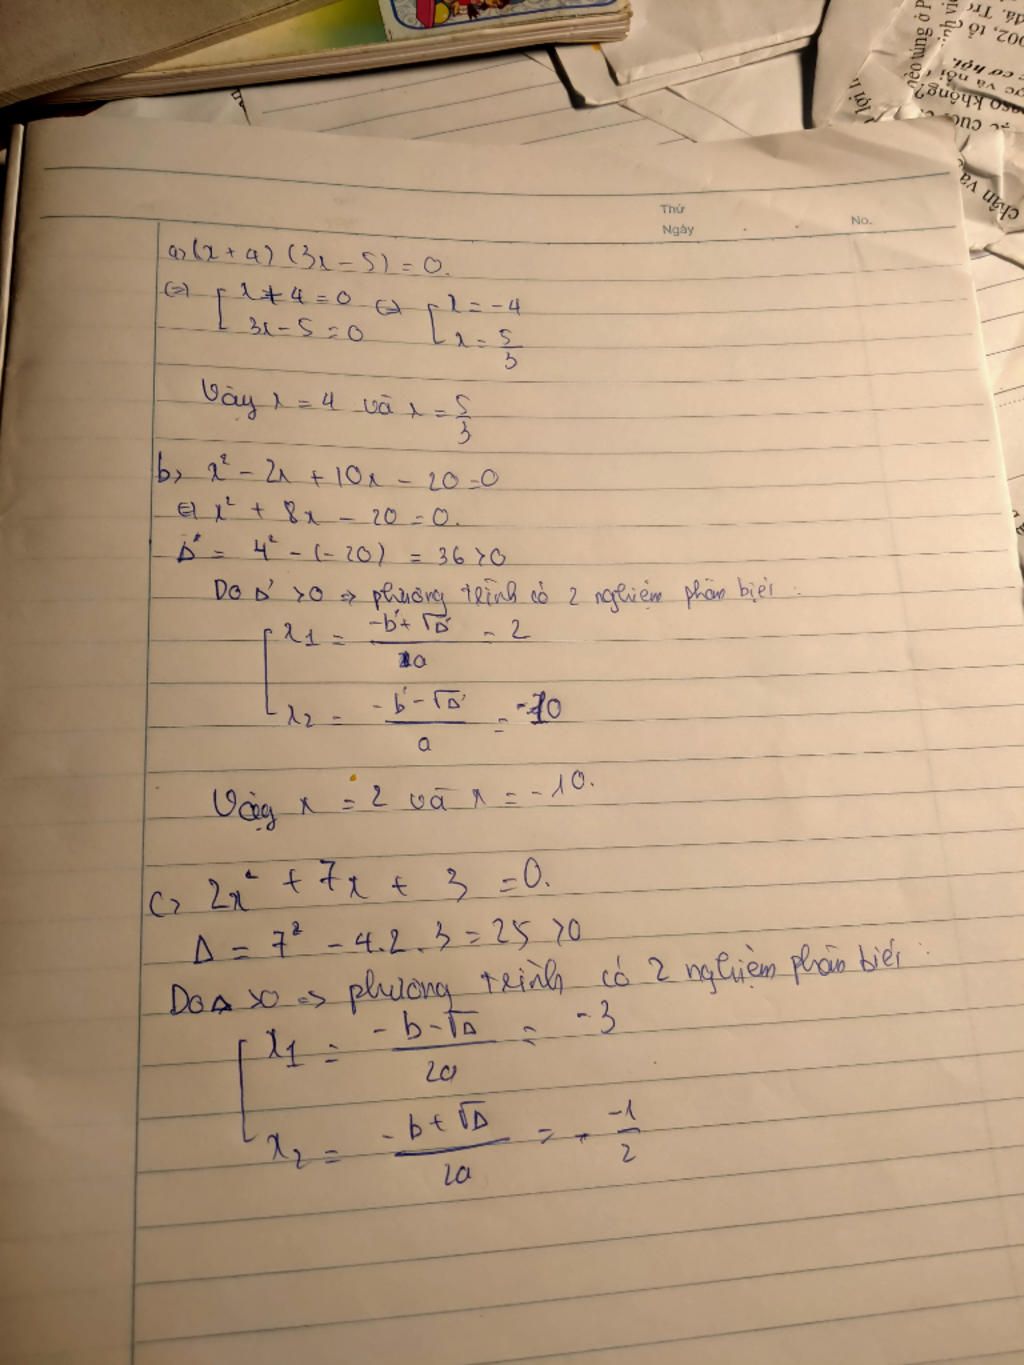 Thứ
Ngày
No.
a, (x + 4) (3x - 5) = 0.
⇔ [ x + 4 = 0 ⇔ [ x = -4
3x - 5 = 0 x = 5/3
Vậy x = 4 và x = 5/3
b, x² - 2x + 10x - 20 = 0
⇔ x² + 8x - 20 = 0.
Δ' = 4² - (-20) = 36 > 0
Do Δ' > 0 ⇒ phương trình có 2 nghiệm phân biệt :
[ x1 = (-b' + √Δ')/a = 2
x2 = (-b' - √Δ')/a = -10
Vậy x = 2 và x = -10.
c, 2x² + 7x + 3 = 0.
Δ = 7² - 4.2.3 = 25 > 0
Do Δ > 0 ⇒ phương trình có 2 nghiệm phân biệt :
[ x1 = (-b - √Δ)/2a = -3
x2 = (-b + √Δ)/2a = -1/2